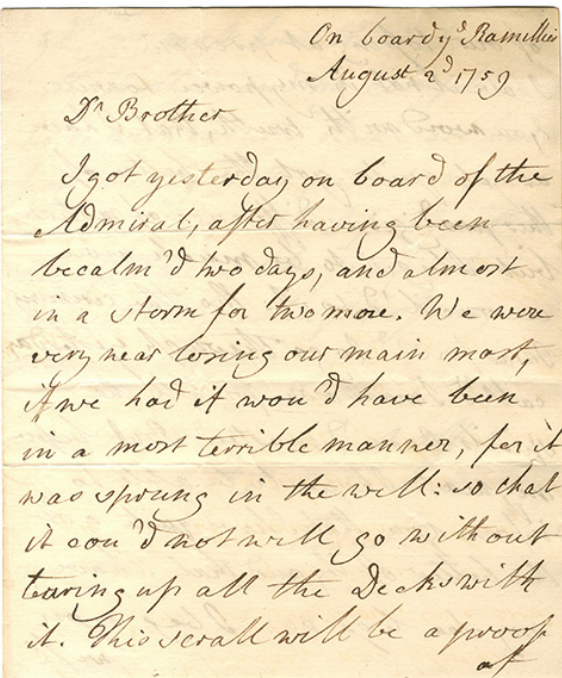 On board yͤ Ramillies
August 2ᵈ 1759
Dʳ Brother
I got yesterday on board of the
Admiral, after having been
becalm'd two days, and almost
in a storm for two more. We were
very near losing our main mast,
if we had it wou'd have been
in a most terrible manner, for it
was sprung in the well: so that
it cou'd not well go without
tearing up all the Decks with
it. This scrall will be a proof
of